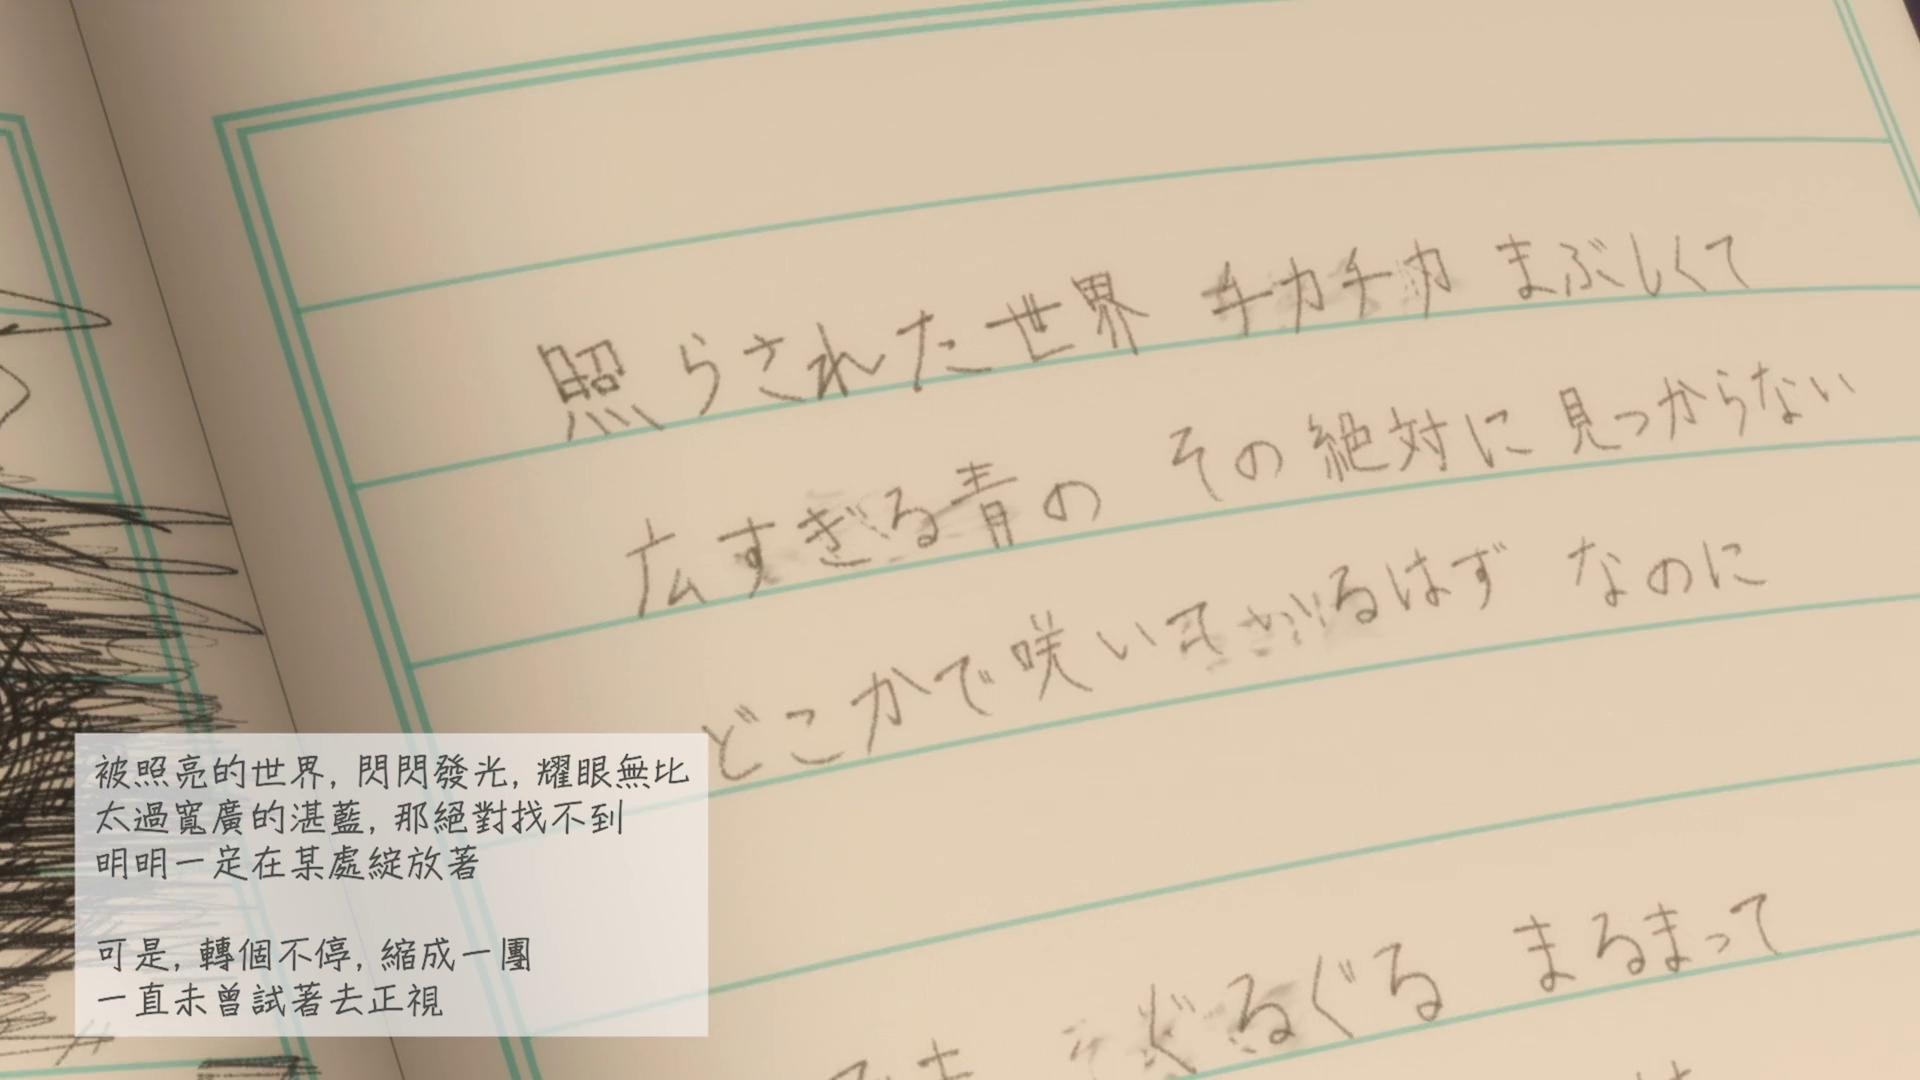 照らされた世界 チカチカ まぶしくて
広すぎる青の その絶対に 見つからない
どこかで咲いてるはず なのに
でも ぐるぐる まるまって
被照亮的世界, 閃閃發光, 耀眼無比
太過寬廣的湛藍, 那絕對找不到
明明一定在某處綻放著
可是, 轉個不停, 縮成一團
一直未曾試著去正視